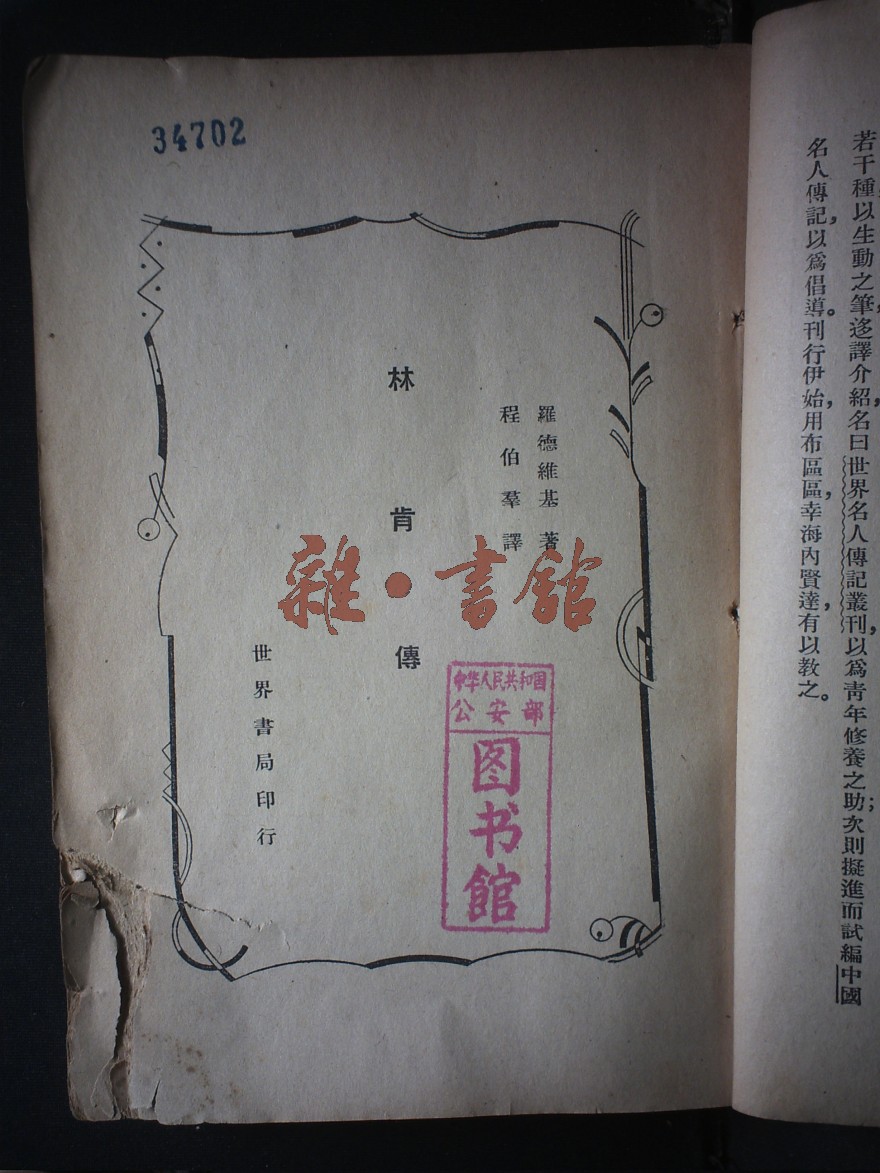 若干種，以生動之筆，迻譯介紹，名曰世界名人傳記叢刊，以爲靑年修養之助；次則擬進而試編中國
名人傳記，以爲倡導。刊行伊始，用布區區，幸海內賢達，有以教之。
34702
羅德維基著
程伯羣譯
林肯傳
世界書局印行
雜·書館
中华人民共和国
公安部
图书馆